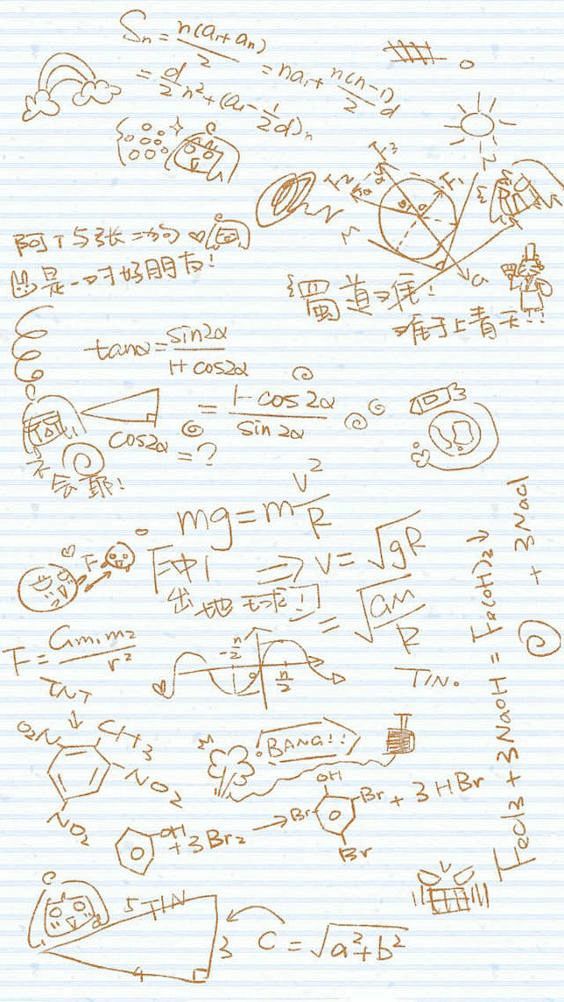 Sn = n(a₁+an)/2 = na₁ + n(n-1)/2 d
= d/2 n² + (a₁ - 1/2 d)n
F₃
F₂
F₁
G
阿T与张二狗
是一对好朋友!
蜀道难!
难于上青天!!
tanα = sin2α/1+cos2α
= 1-cos2α/sin2α
cos2α = ?
不会耶!
mg = m v²/R
F
冲
出地球!
⇒ v = √gR
= √GM/R
F = Gm₁m₂/r²
-π/2
π/2
TIN。
TNT
O₂N
CH₃
NO₂
NO₂
BANG!!
OH
+ 3Br₂ →
OH
Br
Br
Br
+ 3HBr
FeCl₃ + 3NaOH = Fe(OH)₃↓ + 3NaCl
5 TIN
3
4
C = √a²+b²